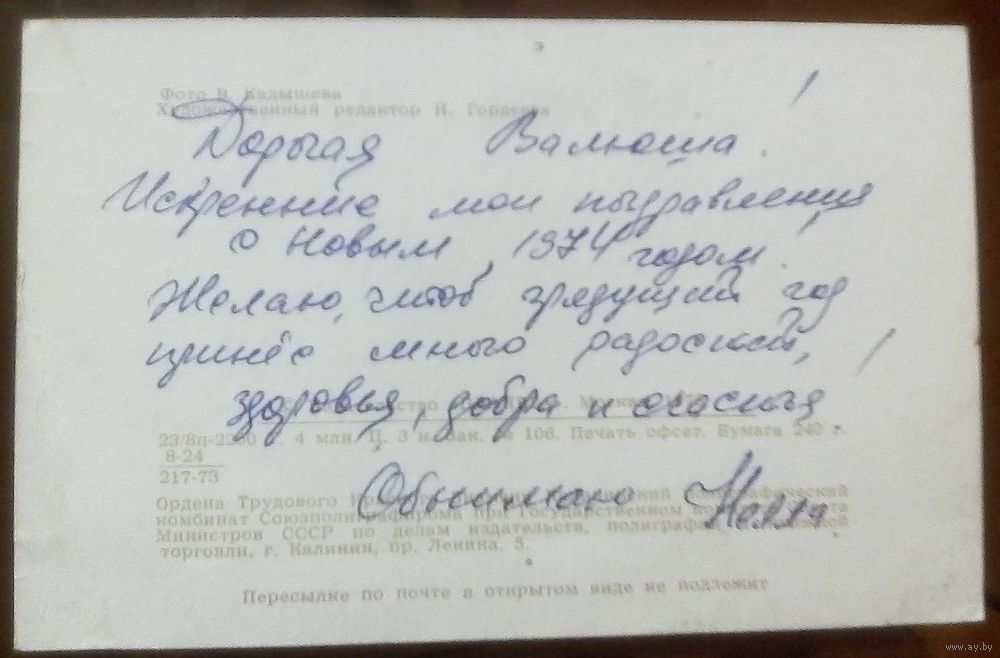 Фото В. Кадышева
Художественный редактор Н. Гордеева
Дорогая Валюша!
Искренние мои поздравления
с Новым, 1974 годом!
Желаю, чтоб грядущий год
принёс много радостей,
здоровья, добра и счастья!
23/8п-2200 4 млн. Ц. 3 к. 106. Печать офсет. Бумага 240 г.
8-24
217-73
Обнимаю Нелля
Ордена Трудового
комбинат Союзполиграфпрома при Государственном
Министров СССР по делам издательств, полиграфии
торговли, г. Калинин, пр. Ленина, 5.
Пересылке по почте в открытом виде не подлежит
www.ay.by